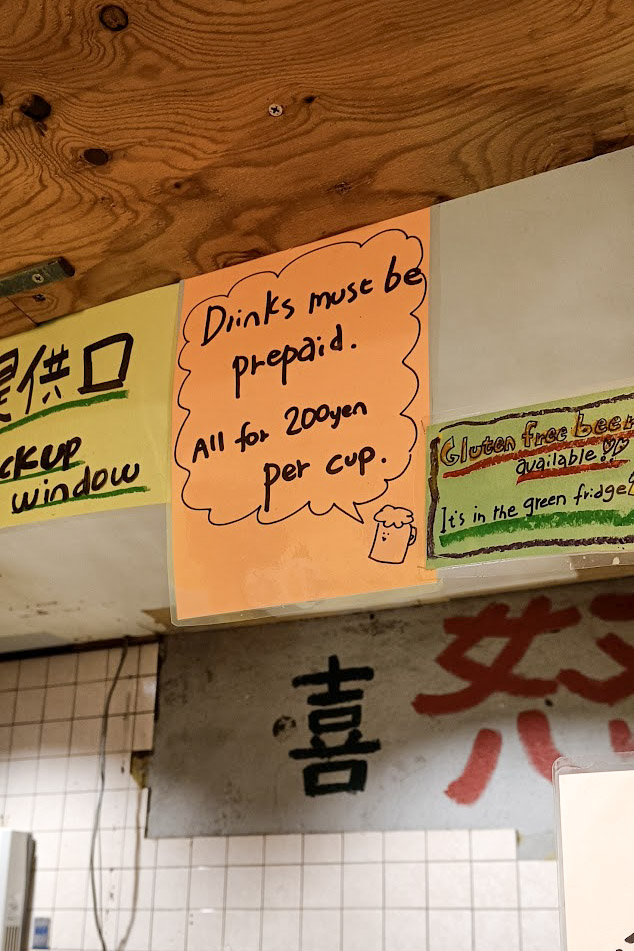 提供口
ckup
window
Drinks must be
prepaid.
All for 200yen
per cup.
Gluten free beer
available!!
It's in the green fridge!
喜
怒